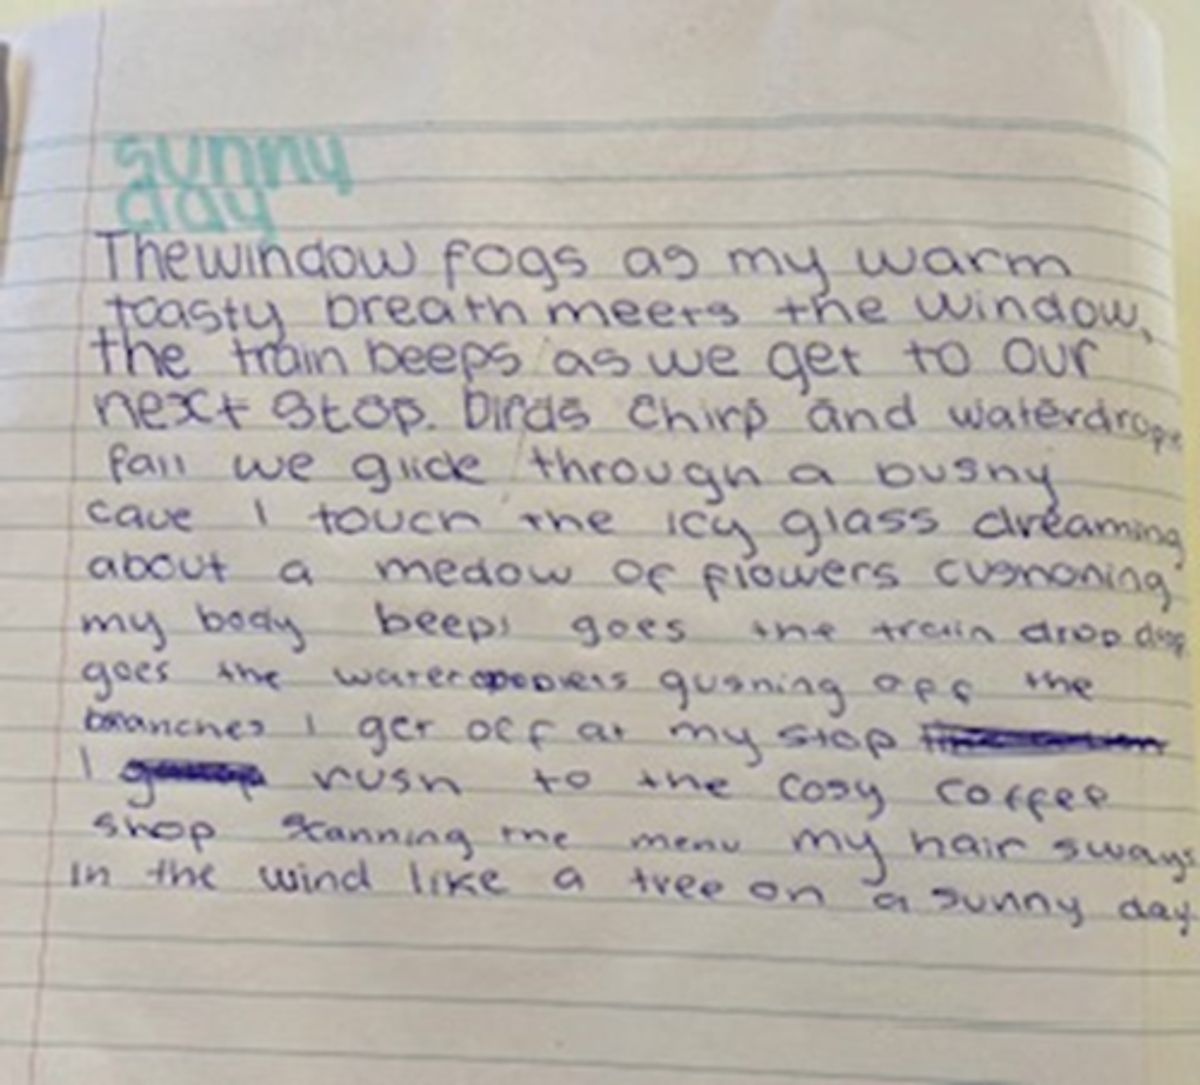 sunny
day
The window fogs as my warm
toasty breath meets the window,
the train beeps as we get to our
next stop. birds chirp and waterdrops
fall we glide through a bushy
cave I touch the icy glass dreaming
about a medow of flowers cushoning
my body beeps goes the train drop drop
goes the gushing off the
branches I get off at my stop
I rush to the cosy coffee
shop scanning the menu my hair sways
in the wind like a tree on a sunny day